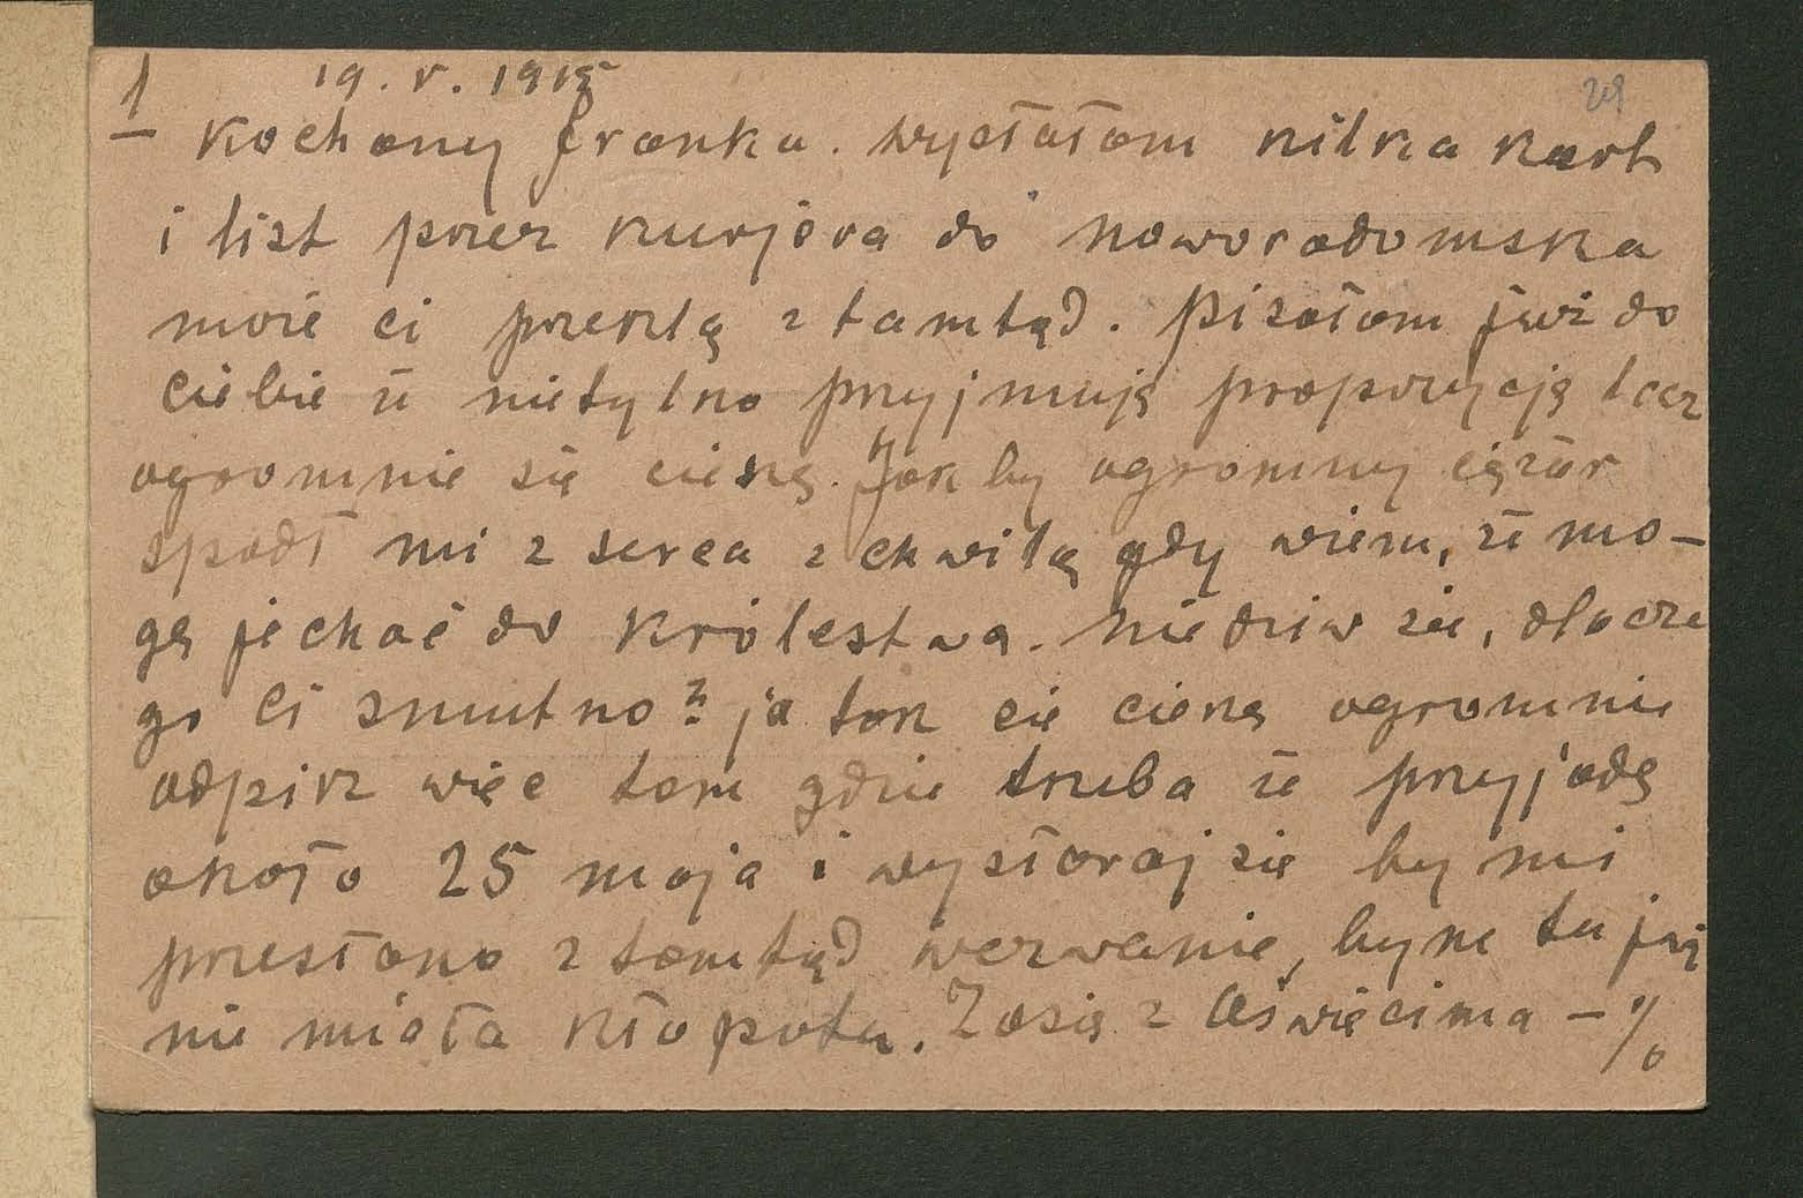 1 19.V.1915 29
Kochany Franku. Wysłałam kilka kart
i list przez kurjera do Noworadomska
może ci prześlą z tamtąd. Pisałam już do
ciebie że nietylko przyjmuję propozycję lecz
ogromnie się cieszę. Jakby ogromny ciężar
spadł mi z serca z chwilą gdy wiem, że mo-
gę jechać do Królestwa. Nie dziw się, dlacze
go Ci smutno? ja tak się cieszę ogromnie
odpisz więc tam gdzie trzeba że przyjadę
około 25 maja i wystaraj się by mi
przesłano z tamtąd wezwanie, bym tu już
nie miała kłopotu. Zosię z Oświęcima – %